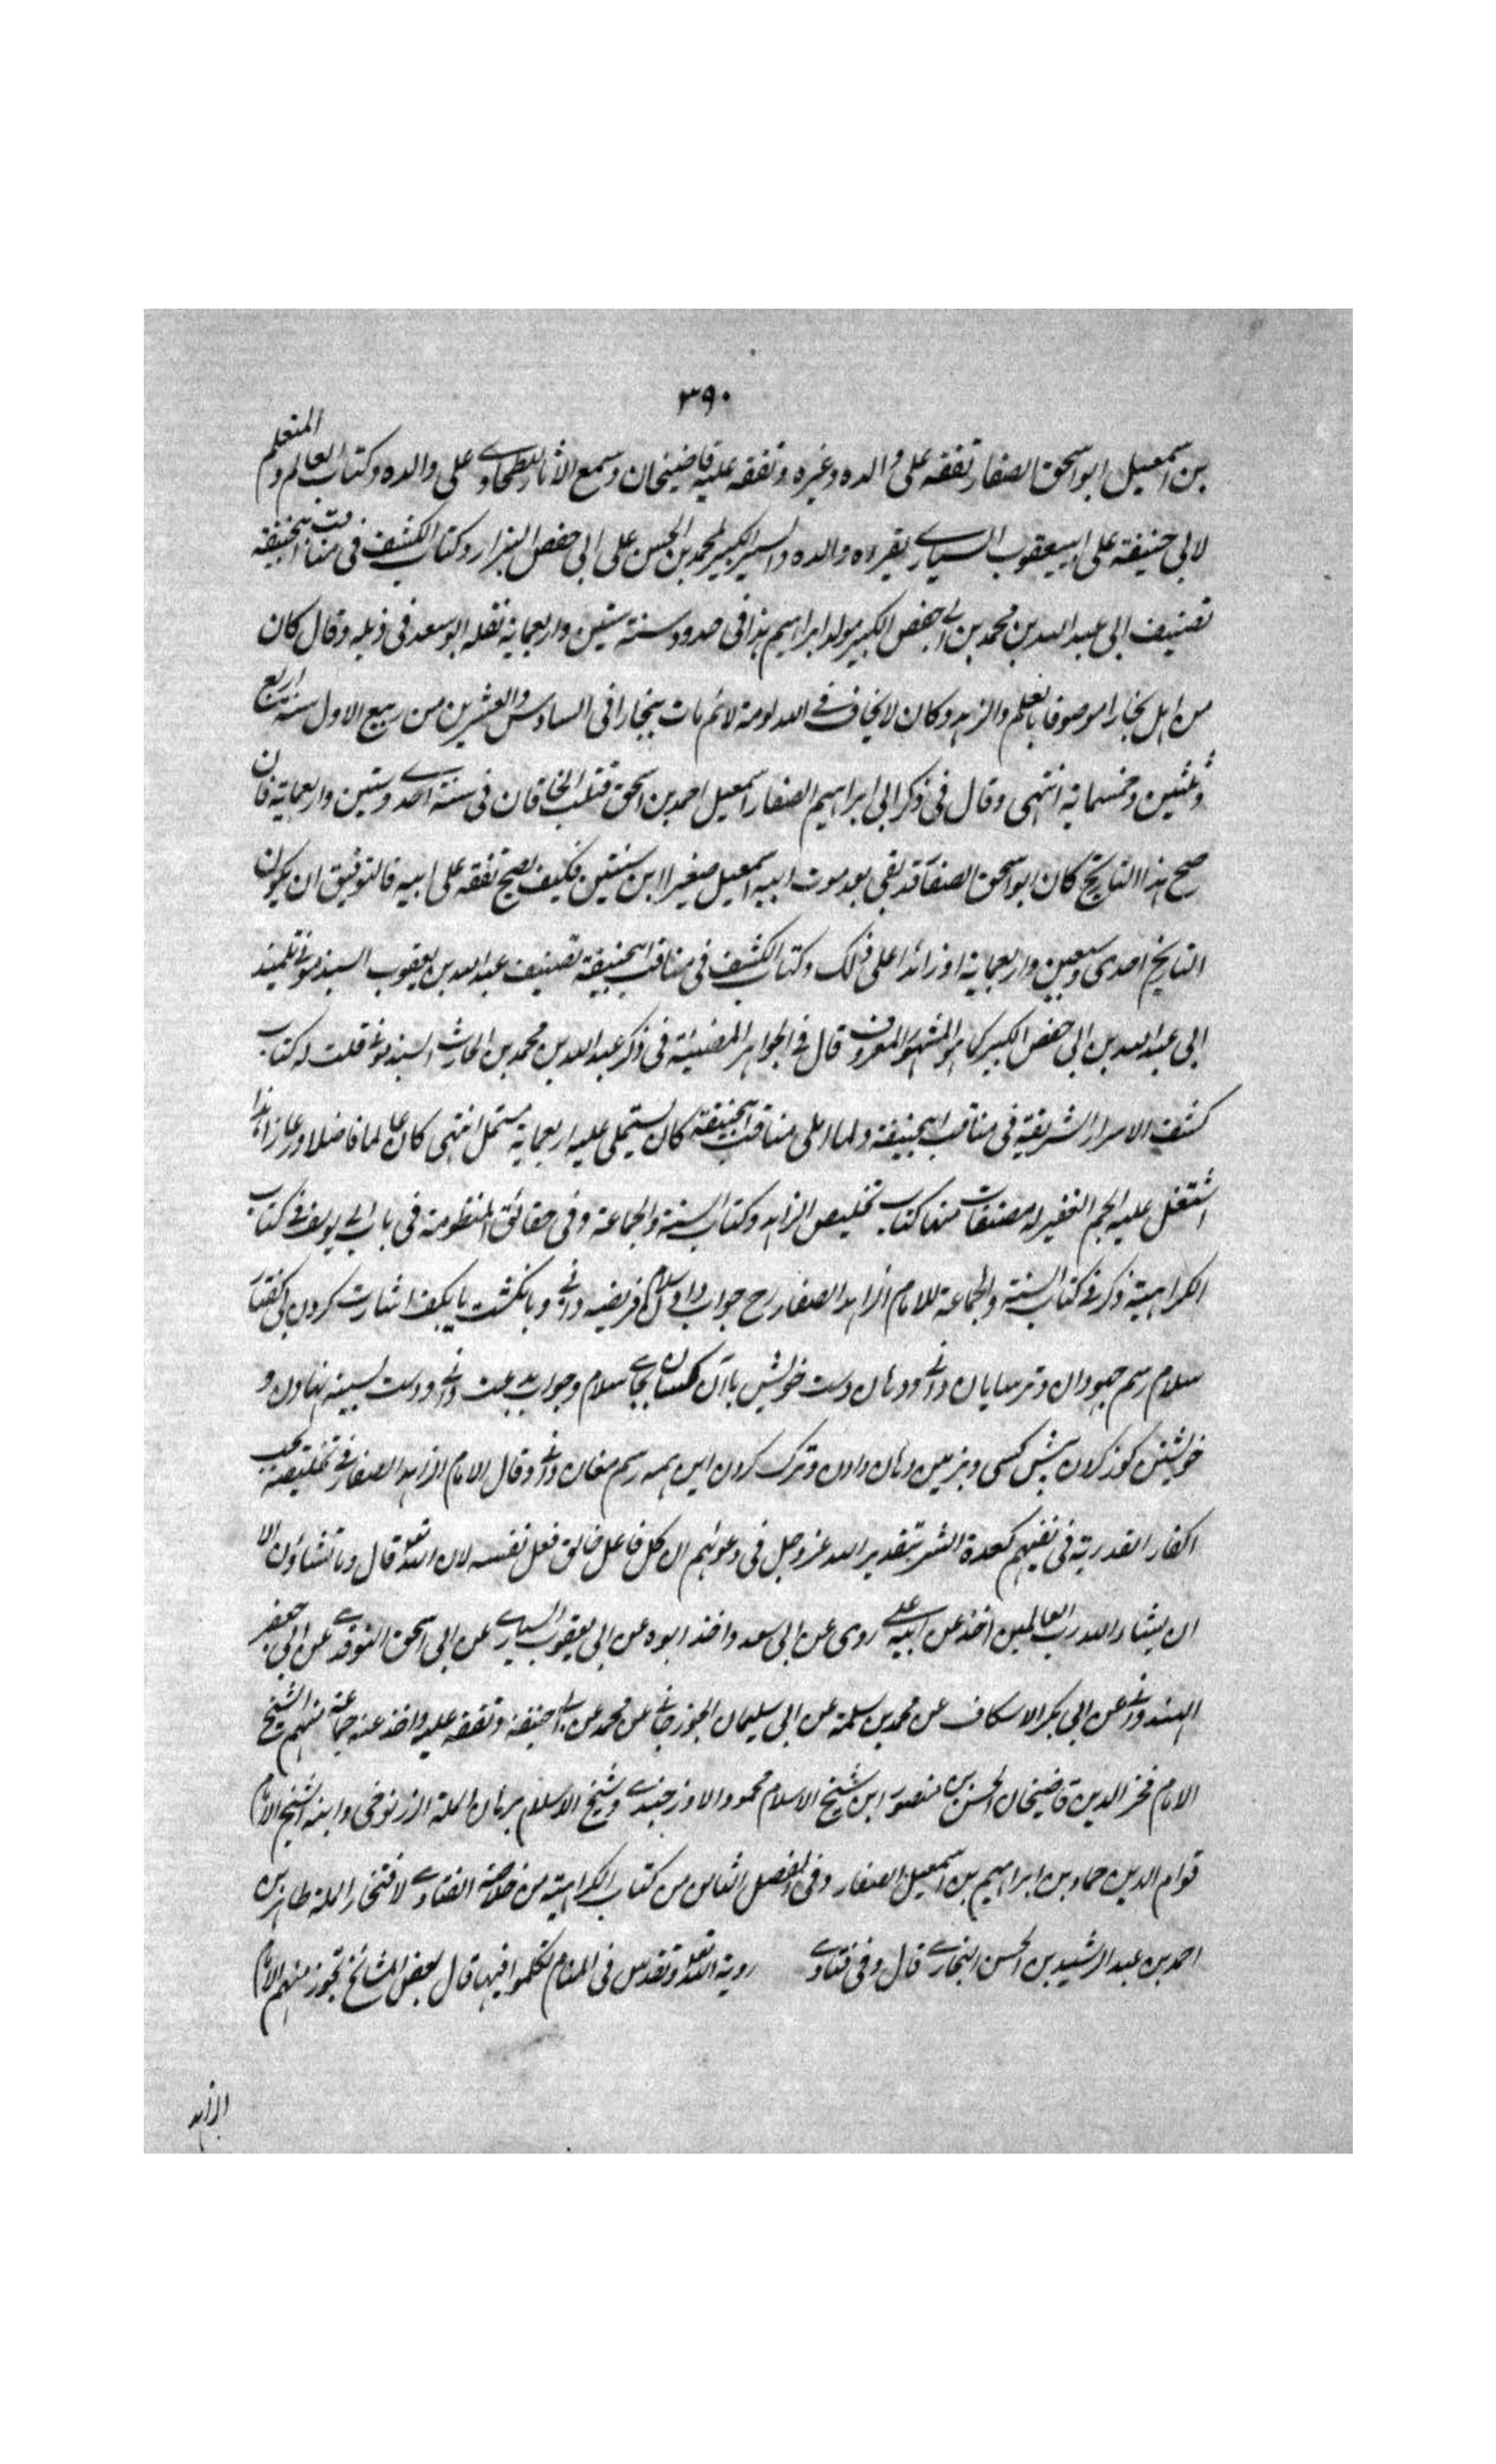 ٣٩٠
بن اسمعیل ابو اسحق الصفار تفقه علی والده وغیره وتفقه علیه قاضیخان وسمع الاثار للطحاوی علی والده وکتاب العالم والمتعلم
لابی حنیفة علی ابی یعقوب السیاری بقراءه والده والسیر الکبیر لمحمد بن الحسن علی ابی حفص البزار وکتاب الکشف فی مناقب ابیحنیفة
تصنیف ابی عبد الله بن محمد بن ابی حفص الکبیر مولد ابراهیم هذا فی حدود سنة ستین واربعمایة نقله ابو سعد فی ذیله وقال کان
من اهل بخارا موصوفا بالعلم والزهد وکان لا یخاف فی الله لومة لائم مات ببخارا فی السادس والعشرین من ربیع الاول سنة اربع
وثلثین وخمسمایة انتهی وقال فی ذکر ابی ابراهیم الصفار اسمعیل احمد بن اسحق قتله الخاقان فی سنة احدی وستین واربعمایة فان
صح هذا التاریخ کان ابو اسحق الصفار قد بقی بعد موت ابیه اسمعیل صغیرا ابن سنتین فکیف یصح تفقه علی ابیه فالتوفیق ان یکون
التاریخ احدی وسبعین واربعمایة او زائدا علی ذلک وکتاب الکشف فی مناقب ابیحنیفة تصنیف عبد الله بن یعقوب السبذمونی تلمیذ
ابی عبد الله بن ابی حفص الکبیر کما هو المشهور المعروف قال فی الجواهر المضیئة فی ذکر عبد الله بن محمد بن الحارث السبذمونی قلت له کتاب
کشف الاسرار الشریفة فی مناقب ابیحنیفة ولما املی مناقب ابیحنیفة کان یستملی علیه اربعمایة مستمل انتهی کان عالما فاضلا ورعا زاهدا
اشتغل علیه الجم الغفیر له مصنفات منها کتاب تخلیص الزاهد وکتاب السنة والجماعة وفی حقائق المنظومة فی باب ابی یوسف فی کتاب
الکراهیة ذکر فی کتاب السنة والجماعة للامام الزاهد الصفار رح جواب دادن سلام فریضه دانی وبانکشت یا بکف اشارت کردن بی گفتار
سلام رسم جهودان وترسایان دانی ودهان دست خویش باآن کسان بجای سلام وجواب بدعت دانی ودست بسینه نهادن و
خویشتن کوز کردن پیش کسی وبزمین دهان دادن وترک کردن این همه رسم مغان دانی وقال الامام الزاهد الصفار فی تخلیصه یجب
اکفار القدریة فی نفیهم کعدة الشر بتقدیر الله عز وجل فی دعوئهم ان کل فاعل خالق فعل نفسه لان الله تعالی قال وما تشاؤن الا
ان یشاء الله رب العالمین اخذ عن ابیه علی روی عن ابی سعد واخذ ابوه عن ابی یعقوب السیاری عن ابی اسحق النوقدی عن ابی جعفر
الهندوانی عن ابی بکر الاسکاف عن محمد بن سلمة عن ابی سلیمان الجوزجانی عن محمد عن ابی حنیفة وتفقه علیه واخذ عنه جماعة منهم الشیخ
الامام فخر الدین قاضیخان الحسن بن منصور ابن شیخ الاسلام محمود الاوزجندی وشیخ الاسلام برهان الملة الزرنوخی وابنه الشیخ الامام
قوام الدین حماد بن ابراهیم بن اسمعیل الصفار وفی الفصل الثامن من کتاب الکراهیة من خلاصة الفتاوی لافتخار الملة طاهر بن
احمد بن عبد الرشید بن الحسن البخاری قال وفی فتاوی رویة الله تعالی وتقدس فی المنام تکلموا فیها قال بعض المشائخ یجوز منهم الامام
الزاهد